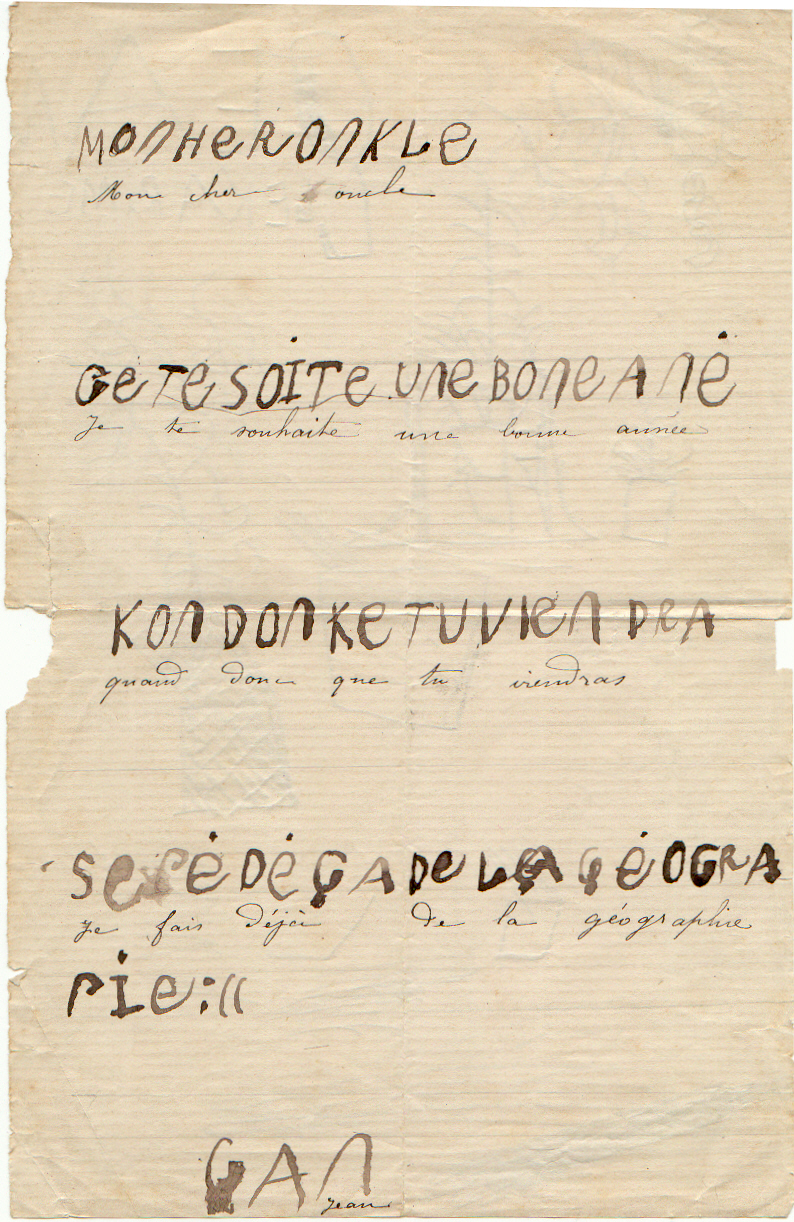 MONHERONKLE
Mon cher oncle
GE TE SOITE UNE BONE ANÉ
je te souhaite une bonne année
KON DON KE TU VIENDRA
quand donc que tu viendras
SE PÉ DÉÇA DE LA ÇÉOGRA
je fais déjà de la géographie
PIE:((
GAN
jean